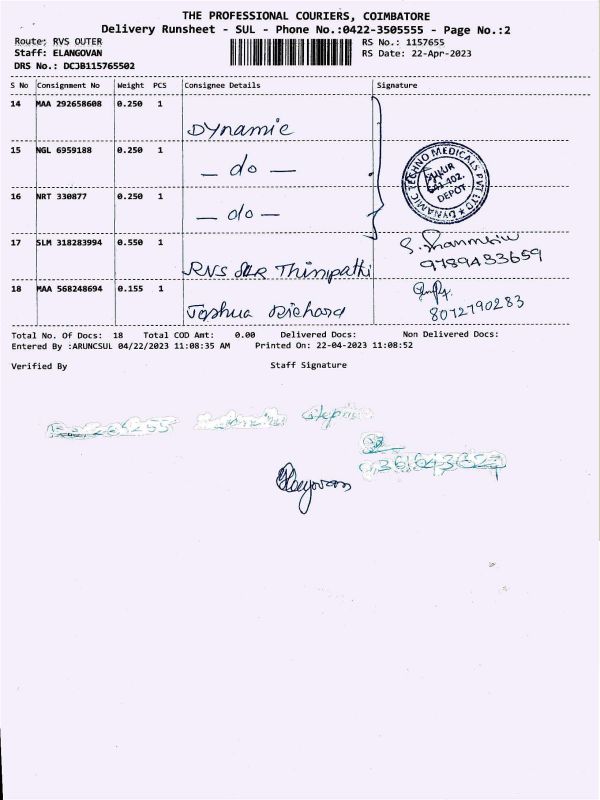 THE PROFESSIONAL COURIERS, COIMBATORE
Delivery Runsheet - SUL - Phone No.:0422-3505555 - Page No.:2
Route: RVS OUTER
RS No.: 1157655
Staff: ELANGOVAN
RS Date: 22-Apr-2023
DRS No.: DCJB115765502
S No Consignment No Weight PCS Consignee Details Signature
14 MAA 292658608 0.250 1
Dynamic
15 NGL 6959188 0.250 1
— do —
16 NRT 330877 0.250 1
— do —
DYNAMIC TECHNO MEDICALS PVT LTD
SULUR
641 402.
DEPOT
17 SLM 318283994 0.550 1
RVS
9789433659
18 MAA 568248694 0.155 1
Joshua Richard
8072790283
Total No. Of Docs: 18 Total COD Amt: 0.00 Delivered Docs: Non Delivered Docs:
Entered By :ARUNCSUL 04/22/2023 11:08:35 AM Printed On: 22-04-2023 11:08:52
Verified By Staff Signature